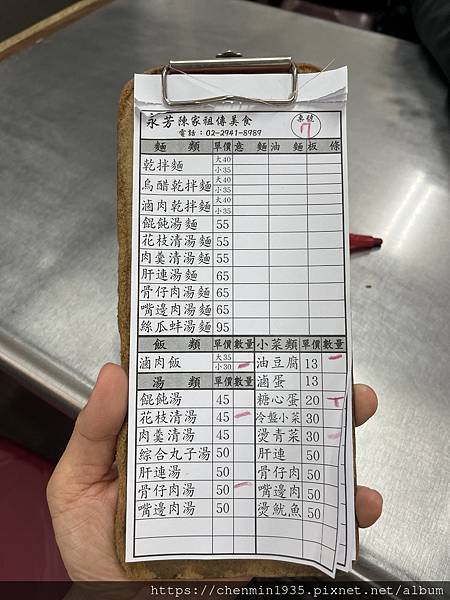 永芳陳家祖傳美食
電話：02-2941-8989
桌號
7
麵 類 單價 意 麵 油 麵 板 條
乾拌麵 大40 小35
烏醋乾拌麵 大40 小35
滷肉乾拌麵 大40 小35
餛飩湯麵 55
花枝清湯麵 55
肉羹清湯麵 55
肝連湯麵 65
骨仔肉湯麵 65
嘴邊肉湯麵 65
絲瓜蚌湯麵 95
飯 類 單價 數量 小菜類 單價 數量
滷肉飯 大35 小30 油豆腐 13
湯 類 單價 數量 滷蛋 13
餛飩湯 45 糖心蛋 20
花枝清湯 45 冷盤小菜 30
肉羹清湯 45 燙青菜 30
綜合丸子湯 50 肝連 50
肝連湯 50 骨仔肉 50
骨仔肉湯 50 嘴邊肉 50
嘴邊肉湯 50 燙魷魚 50
https://chenmin1935.pixnet.net/album